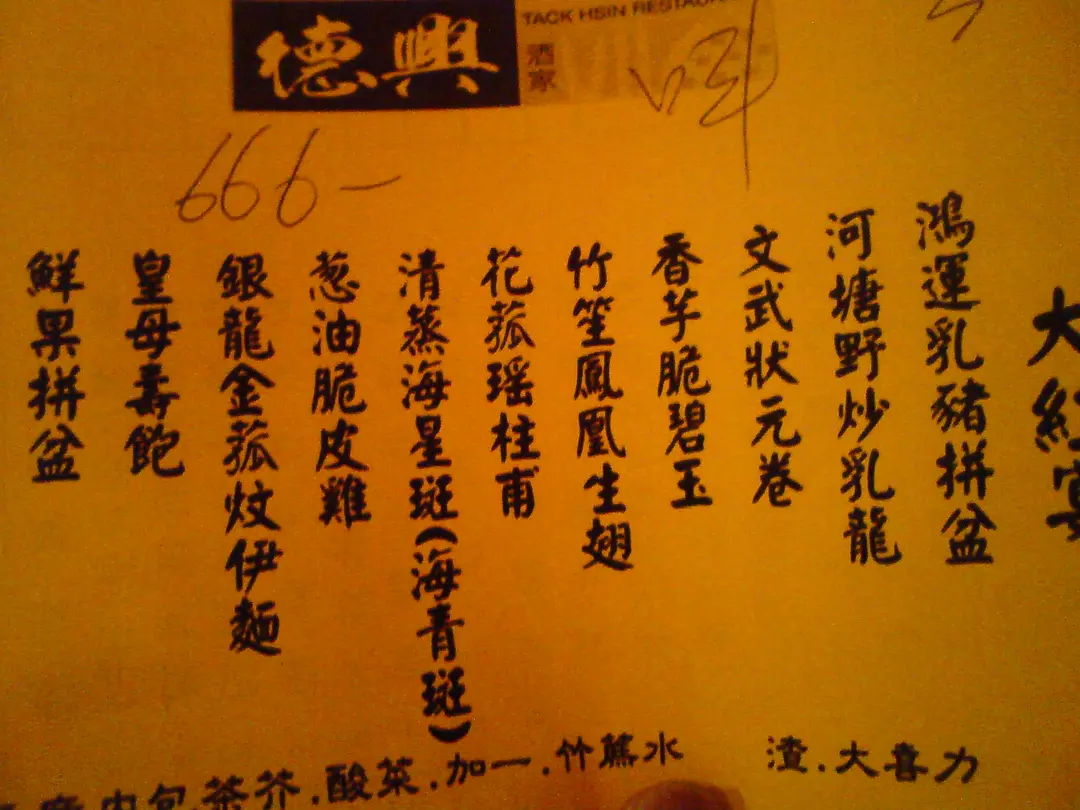 德興
酒家
TACK HSIN RESTAURA
666-
大紅宴
鴻運乳豬拼盆
河塘野炒乳龍
文武狀元卷
香芋脆碧玉
竹笙鳳凰生翅
花菰瑶柱甫
清蒸海星斑(海青斑)
葱油脆皮雞
銀龍金菰炆伊麵
皇母壽飽
鮮果拼盆
包茶芥.酸菜.加一.竹蔗水 渣.大喜力